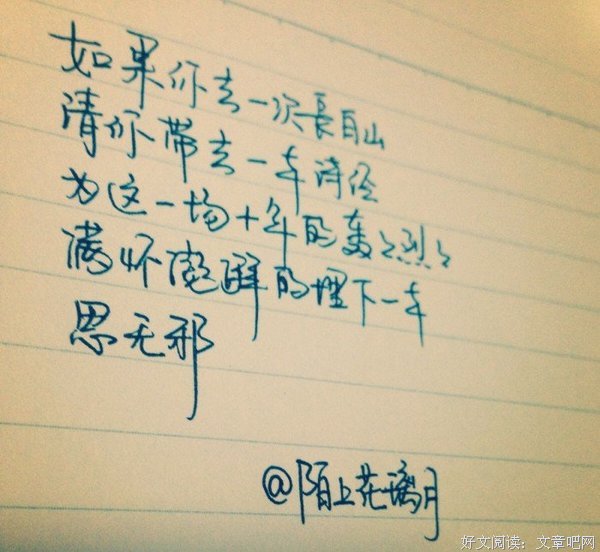 如果你去一次長白山
请你带去一车诗经
为这一场十年的轰々烈々
满怀慈悲的埋下一车
思无邪
@陌上花璃月
好文阅读：文章吧网